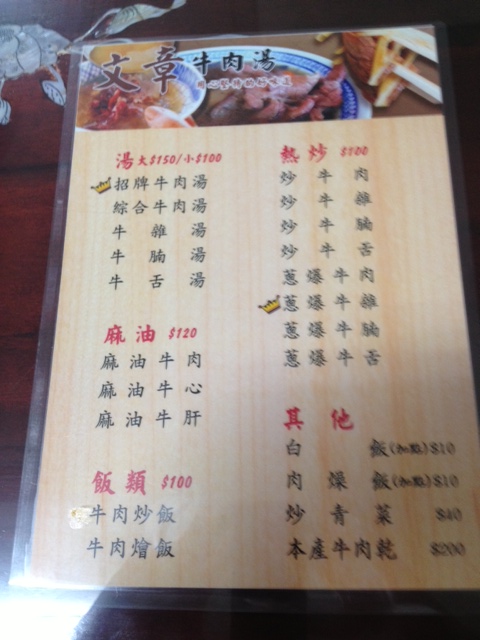 文章牛肉湯
湯大$150/小$100
招牌牛肉湯
綜合牛肉湯
牛雜湯
牛腩湯
牛舌湯
麻油 $120
麻油牛肉
麻油牛心
麻油牛肝
飯類 $100
牛肉炒飯
牛肉燴飯
熱炒 $100
炒牛肉
炒牛雜
炒牛腩
炒牛舌
蔥爆牛肉
蔥爆牛雜
蔥爆牛腩
蔥爆牛舌
其他
白飯(加點)$10
肉燥飯(加點)$10
炒青菜 $40
本產牛肉乾 $200